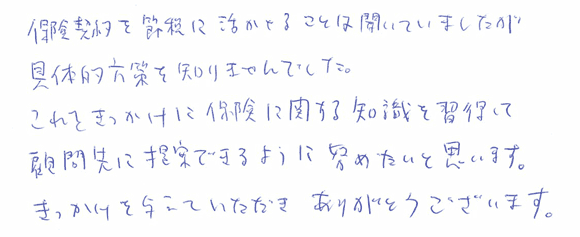 保険契約を節税に活かせることは聞いていましたが
具体的方策を知りませんでした。
これをきっかけに保険に関する知識を習得して
顧問先に提案できるように努めたいと思います。
きっかけを与えていただきありがとうございます。